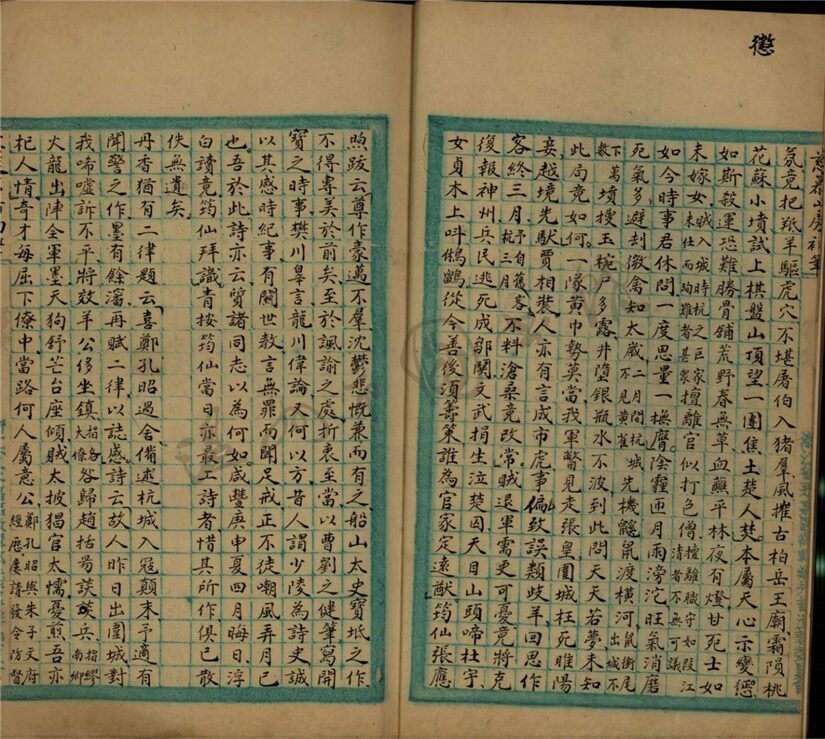 懲
氛竟把羝羊驅虎穴不堪屠伯入猪羣風摧古柏岳王廟霜隕桃
花蘇小墳試上棋盤山頂望一團焦土楚人焚本屬天心示變懲
如斯殺運恐難勝骨鋪荒野春無草血蘸平林夜有燈甘死士如
未嫁女賊入城時杭之巨家未仕而陶難者甚衆擅離官似打色僧擅離職守如段江清者不無可議
如今時事君休問一度思量一撫膺陰霾匝月雨滂沱旺氣消磨
死氣多避刦微禽知太歲二月間杭城不見黃雀先機鼷鼠渡橫河鼠銜尾出城不
下數萬墳搜玉椀尸多露井墮銀瓶水不波到此問天天若夢未知
此局竟如何一隊黃巾勢莫當我軍瞥見走張皇圍城枉死睢陽
妾越境先馱賈相裝人亦有言成市虎事偏致誤類歧羊回思作
客終三月予自三月杭舊客不料滄桑竟改常賊退軍需更可憂竟將克
復報神州兵民逃死成鄒鬨文武捐生泣楚囚天目山頭啼杜宇
女貞木上叫鵂鶹從今善後須籌策誰為官家定遠猷筠仙張應
煦跋云尊作豪邁不羣沈鬱悲慨兼而有之船山太史寶坻之作
不得專美於前矣至於諷諭之處折衷至當以曹劉之健筆寫開
寶之時事樊川皋言龍川偉論又何以方昔人謂少陵為詩史誠
以其感時紀事有關世教言無罪而聞足戒正不徒嘲風弄月已
也吾於此詩亦云質諸同志以為何如咸豐庚申夏四月晦日浮
白讀竟筠仙拜識青按筠仙當日亦最工詩者惜其所作俱已散
佚無遺矣
丹香猶有二律題云喜鄭孔昭過舍備述杭城入寇顛末予適有
聞警之作墨有餘瀋再賦二律以誌感詩云故人昨日出圍城對
我啼噓訴不平將效羊公侈坐鎮指各大僚谷歸趙括易談兵指繆南卿
火龍出陣全軍墨天狗舒芒台座傾賊太披猖官太懦憂煎吾亦
杞人情奇才每屈下僚中當路何人屬意公鄭孔昭與朱子文府經歷屢請發令防督